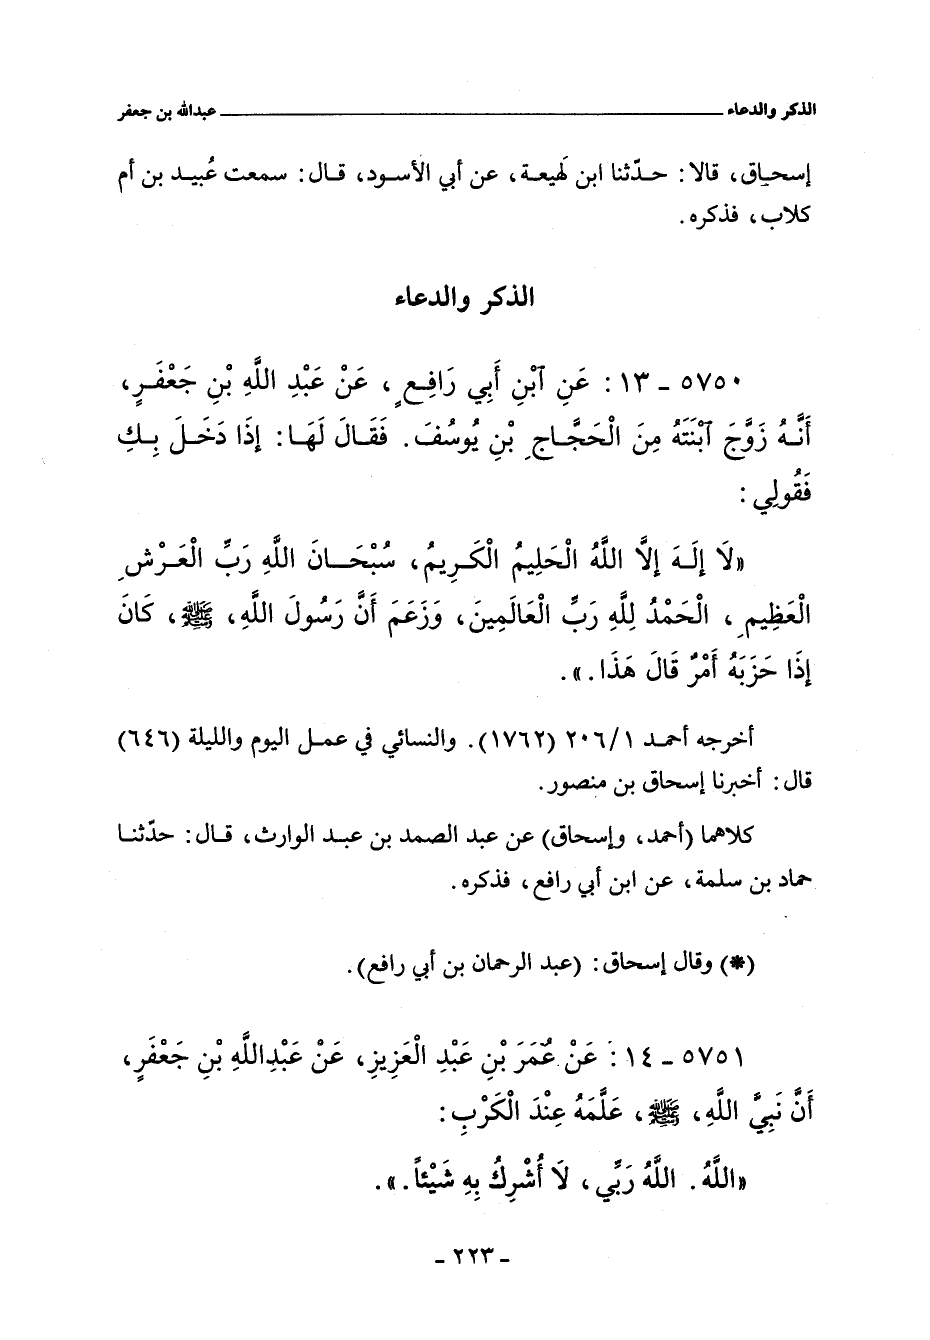 الذكر والدعاء ــــــــــــــــــــ عبدالله بن جعفر
إسحاق، قالا: حدّثنا ابن لهيعة، عن أبي الأسود، قال: سمعت عُبيد بن أم
كلاب، فذكره.
الذكر والدعاء
٥٧٥٠ ـ ١٣: عَنِ ٱبْنِ أَبِي رَافِعٍ، عَنْ عَبْدِ اللَّهِ بْنِ جَعْفَرٍ،
أَنَّهُ زَوَّجَ ٱبْنَتَهُ مِنَ الْحَجَّاجِ بْنِ يُوسُفَ. فَقَالَ لَهَا: إِذَا دَخَلَ بِكِ
فَقُولِي:
«لَا إِلَهَ إِلَّا اللَّهُ الْحَلِيمُ الْكَرِيمُ، سُبْحَانَ اللَّهِ رَبِّ الْعَرْشِ
الْعَظِيمِ، الْحَمْدُ لِلَّهِ رَبِّ الْعَالَمِينَ، وَزَعَمَ أَنَّ رَسُولَ اللَّهِ، ﷺ، كَانَ
إِذَا حَزَبَهُ أَمْرٌ قَالَ هَذَا.».
أخرجه أحمد ٢٠٦/١ (١٧٦٢). والنسائي في عمل اليوم والليلة (٦٤٦)
قال: أخبرنا إسحاق بن منصور.
كلاهما (أحمد، وإسحاق) عن عبد الصمد بن عبد الوارث، قال: حدّثنا
حماد بن سلمة، عن ابن أبي رافع، فذكره.
(*) وقال إسحاق: (عبد الرحمان بن أبي رافع).
٥٧٥١ ـ ١٤: عَنْ عُمَرَ بْنِ عَبْدِ الْعَزِيزِ، عَنْ عَبْدِاللَّهِ بْنِ جَعْفَرٍ،
أَنَّ نَبِيَّ اللَّهِ، ﷺ، عَلَّمَهُ عِنْدَ الْكَرْبِ:
«اللَّهُ. اللَّهُ رَبِّي، لَا أُشْرِكُ بِهِ شَيْئاً.».
ـ ٢٢٣ ـ